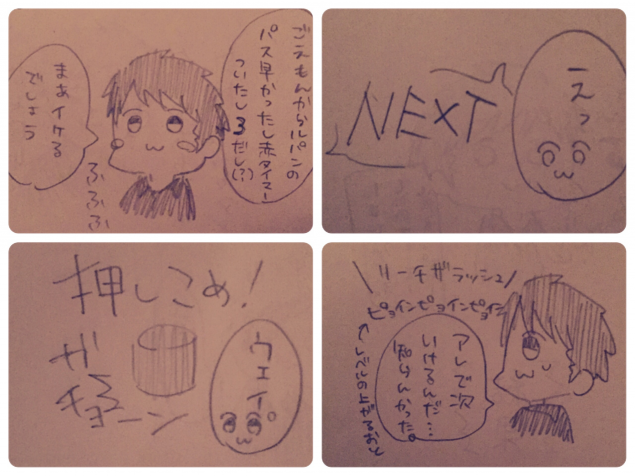 ごえもんからルパンの
パス早かったし赤タイマー
ついたし3だし(?)
まあイケる
でしょう
ふふふ
えっ
NEXT
押しこめ!
ガ
チョーン
ウェイ。
\リーチザラッシュ/
ピョインピョインピョイン
アレで次
いけるんだ…
知らんかった。